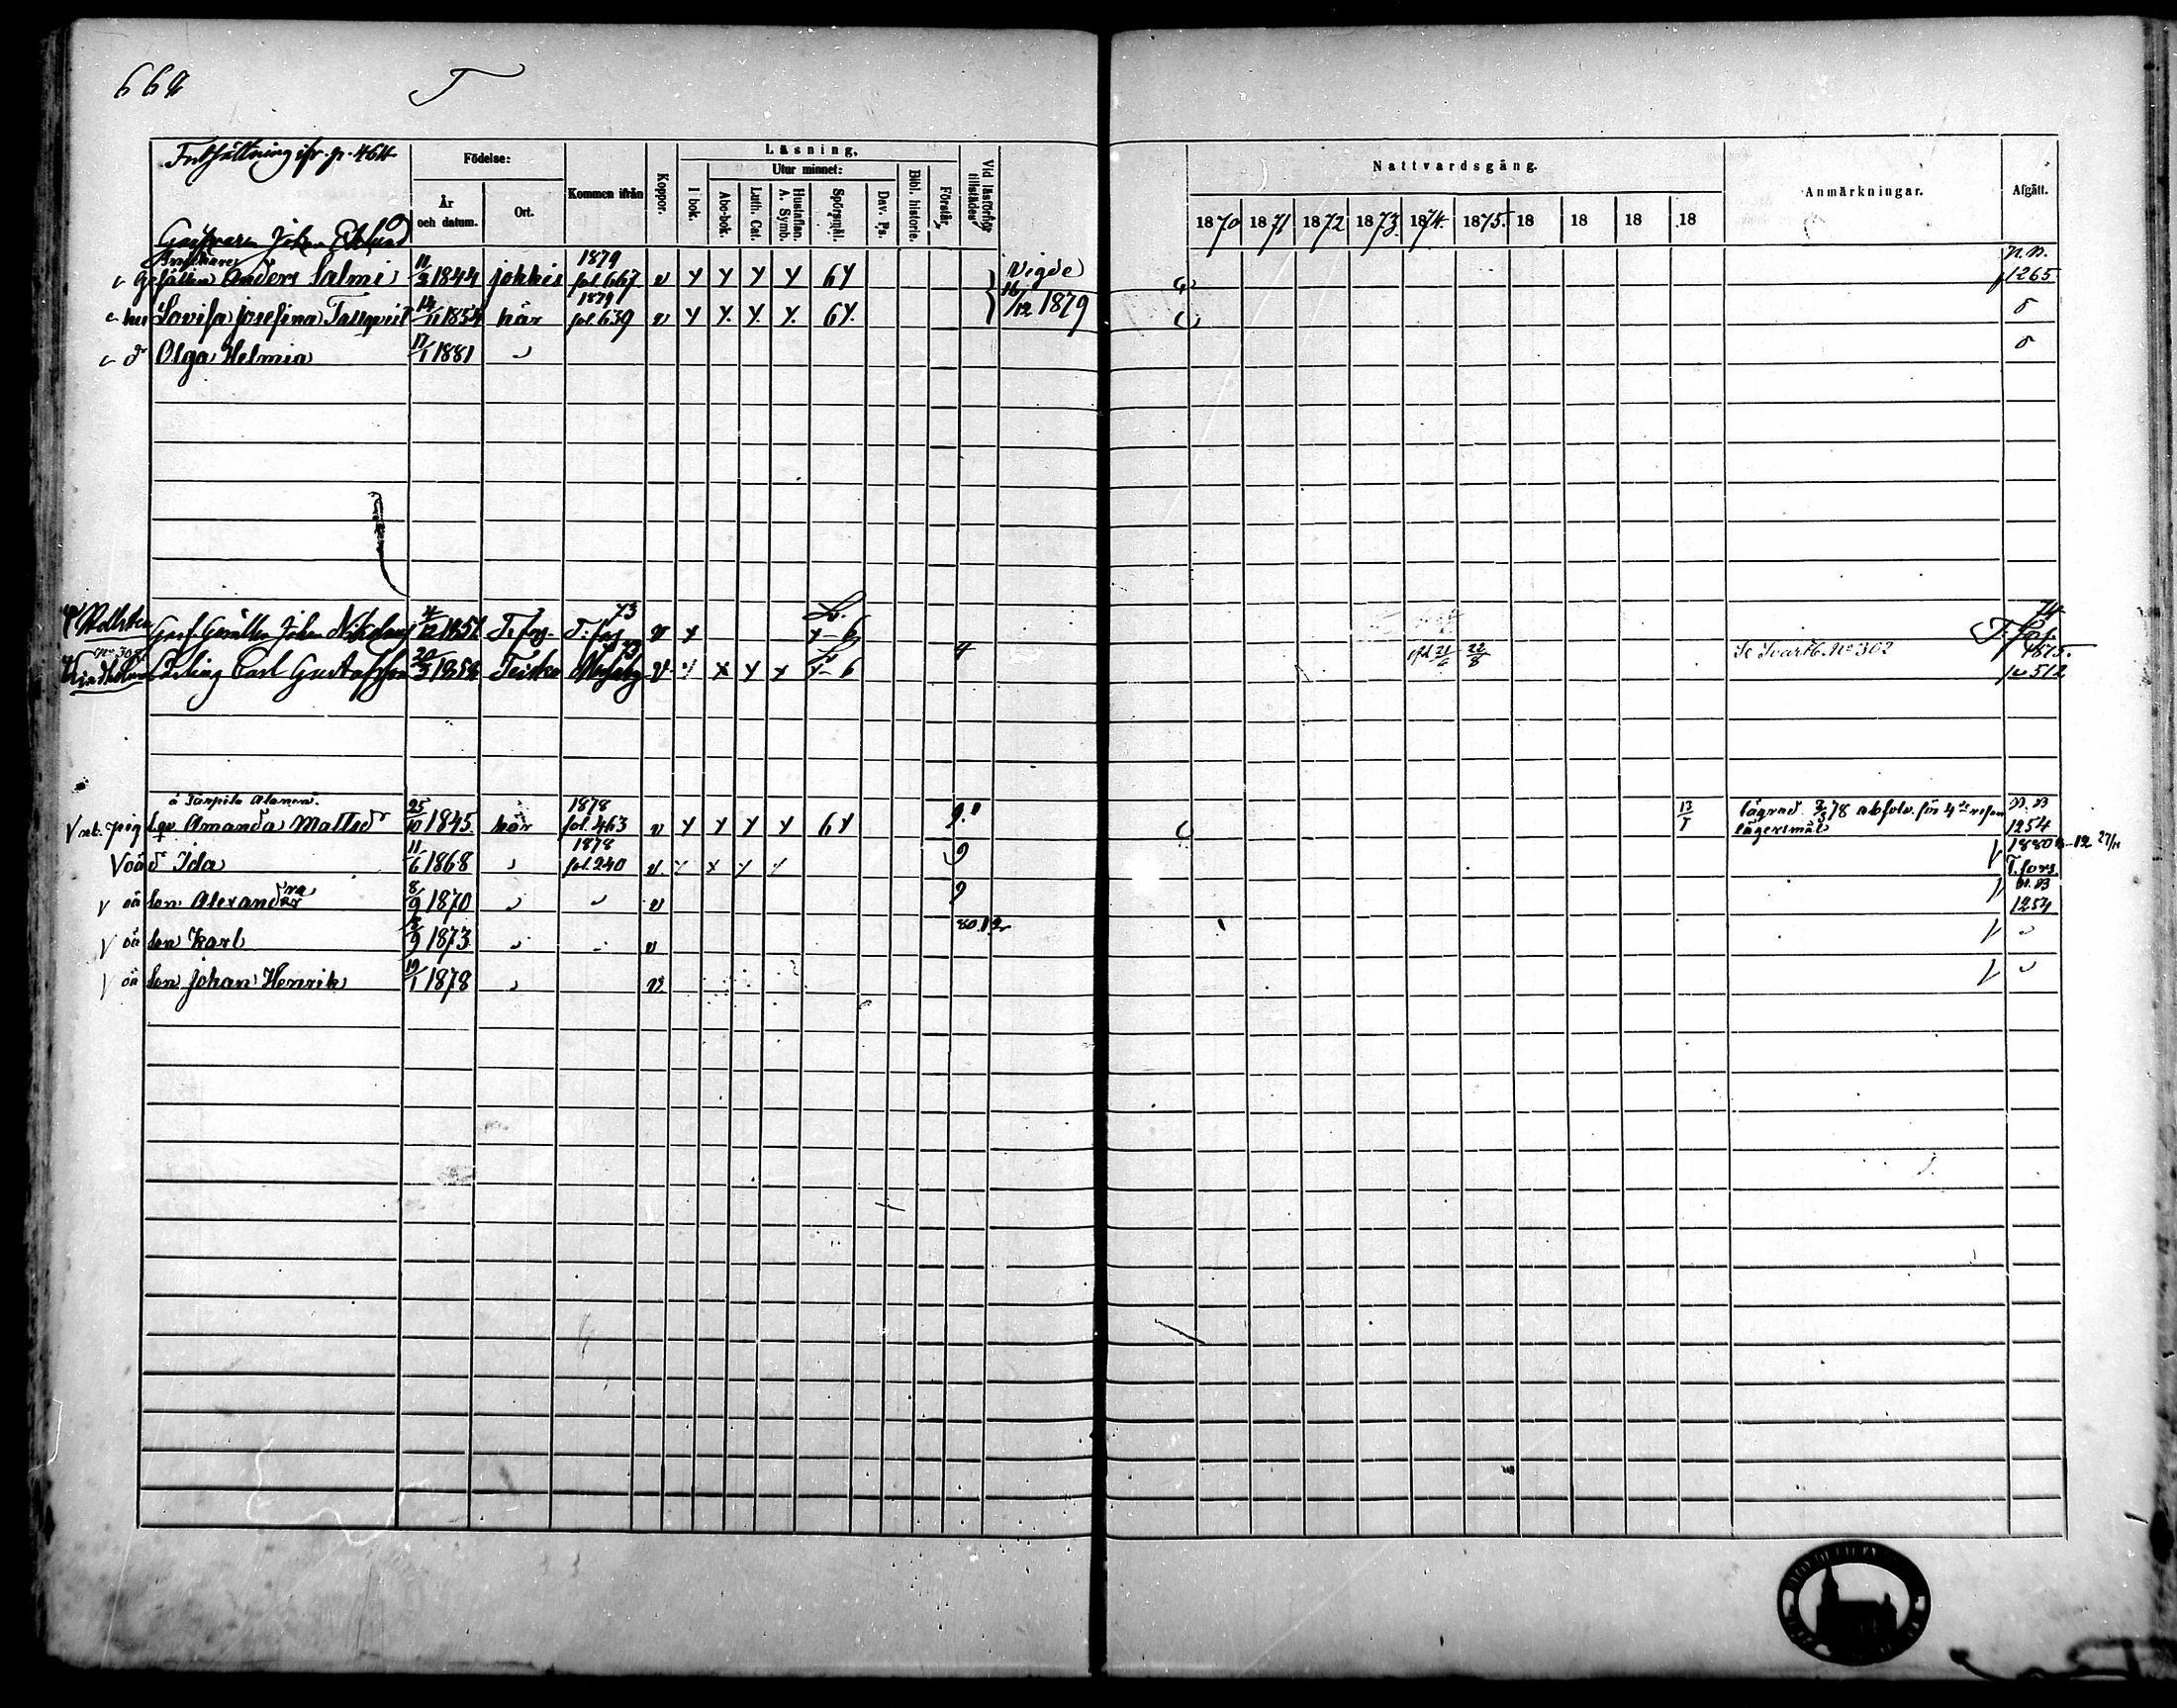 668 T
Fortsättning ifr. p. 464
Födelse:
År och datum.
Ort.
Kommen ifrån
Koppor.
Läsning,
I bok.
Utur minnet:
Abc-bok.
Luth. Cat.
Hustaflan. A. Symb.
Spörsmål.
Dav. Ps.
Bibl. historie.
Förstår.
Vid läsförhör tillstädes
Nattvardsgång.
1870 1871 1872 1873 1874 1875 18 18 18 18
Anmärkningar.
Afgått.
Garfvaren Johan Eklund
Gesällen Anders Salmi 11/3 1844 jokkis 1879 fol. 667 v y y y y 6y Vigde 16/12 1879 n.B. 1265
hu Lovisa josefina Tallqvist 14/11 1854 här 1879 fol 639 v y y. y. y. 6y.
dr Olga Helmia 17/1 1881
Garf. Gesällen Johan Nikolaus 4/12 1851 T.fors 73 T.fors v y y-6 74 T.fors.
No 308
Lindholm Lärling Carl Gustafsson 20/3 1858 Teisko 73 v y x y x y-6 4 21/6 22/8 Se Svartb. No 302 1875. 512
å Tarpila Alanen.
pig Amanda Mattsdr 25/10 1845 här 1878 fol. 463 v y y y y 6y 9. 13/1 lägrad 78 absolv. för 4de resan lägersmål n.B 1254
oä dr Ida 11/6 1868 1878 fol. 240 v. y x y y 9 1880 27/11 T.fors.
oä son Alexander ra 8/9 1870 v 9 n.B 1254
oä son Karl 9 1873 v 80.
oä son johan Henrik 19/1 1878 v.